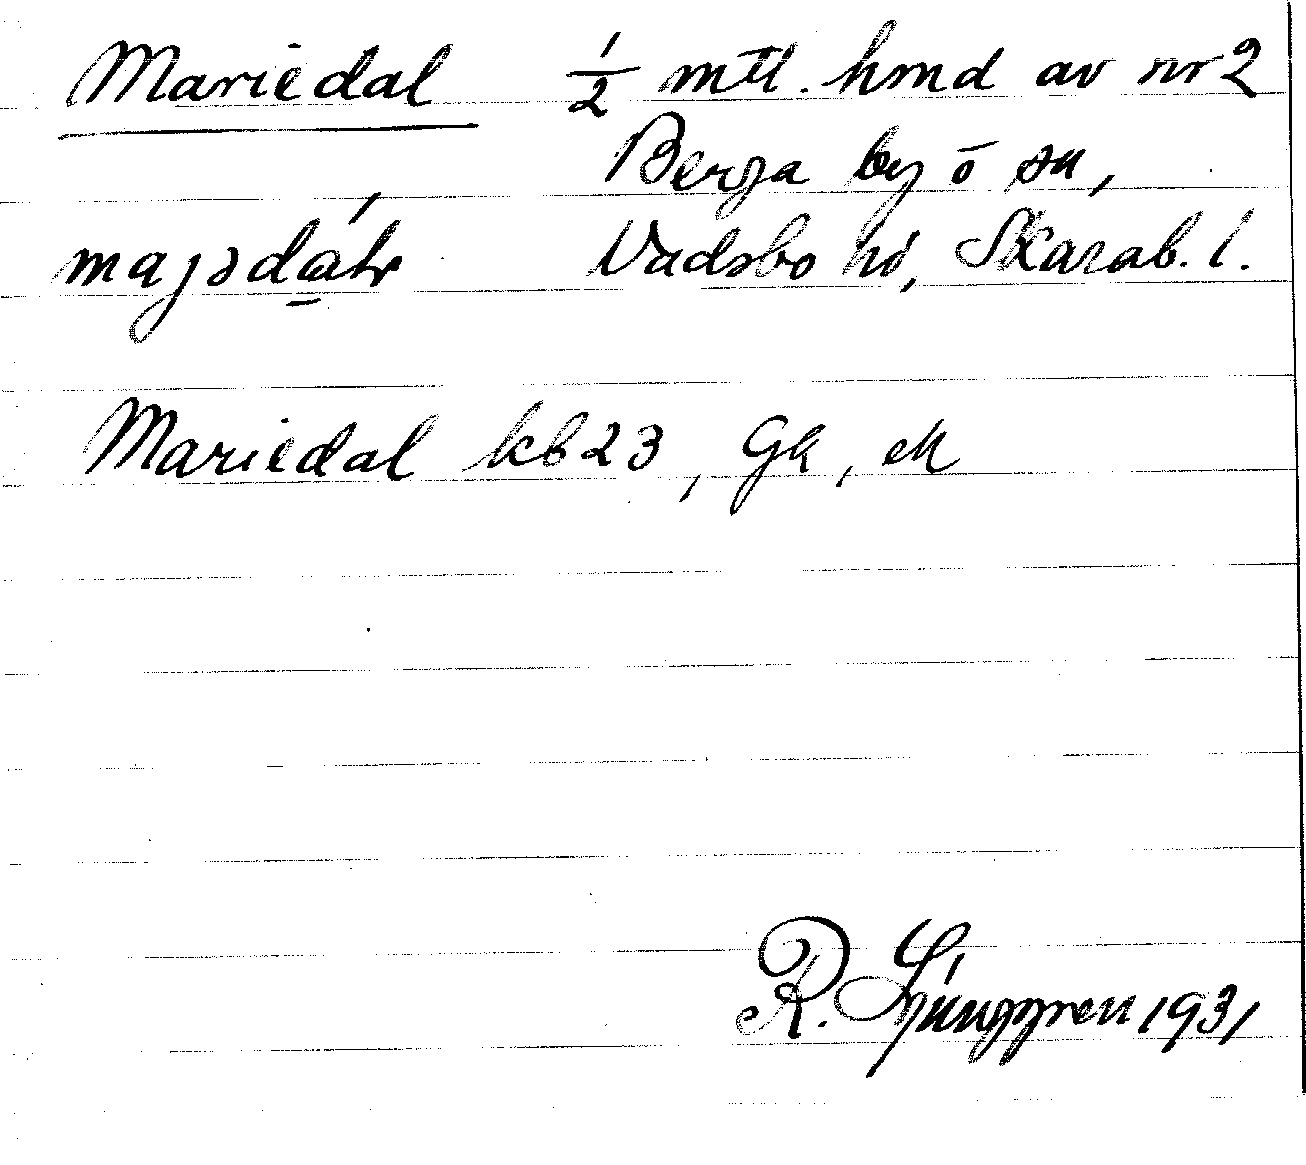 Mariedal 1/2 mtl. hmd av nr 2
Berga by o sn,
Vadsbo hd, Skarab. l.
Mariedal kb 23, Gk, ek
R. Ljunggren 1931